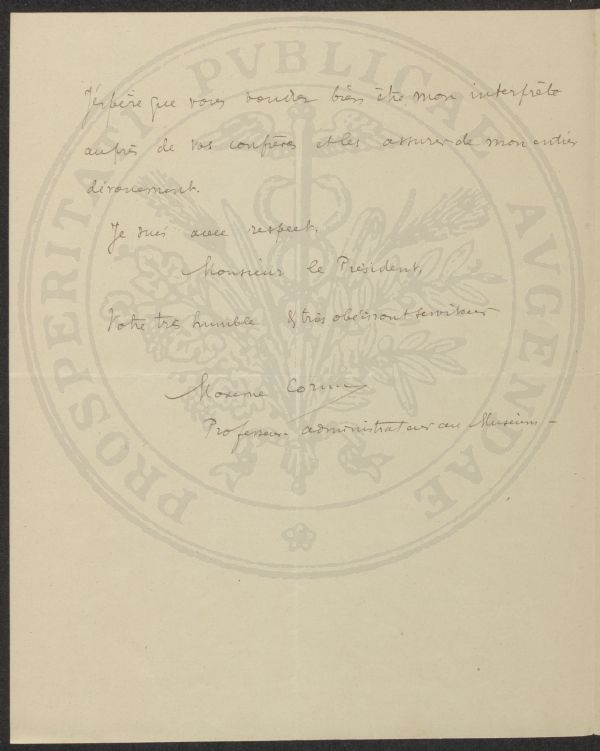 PROSPERITATI PVBLICAE AVGENDAE
J'espère que vous voudrez bien être mon interprète
auprès de vos confrères et les assurer de mon entier
dévouement.
Je suis avec respect,
Monsieur le Président,
Votre très humble & très obéissant serviteur
Maxime Cornu
Professeur-administrateur au Muséum